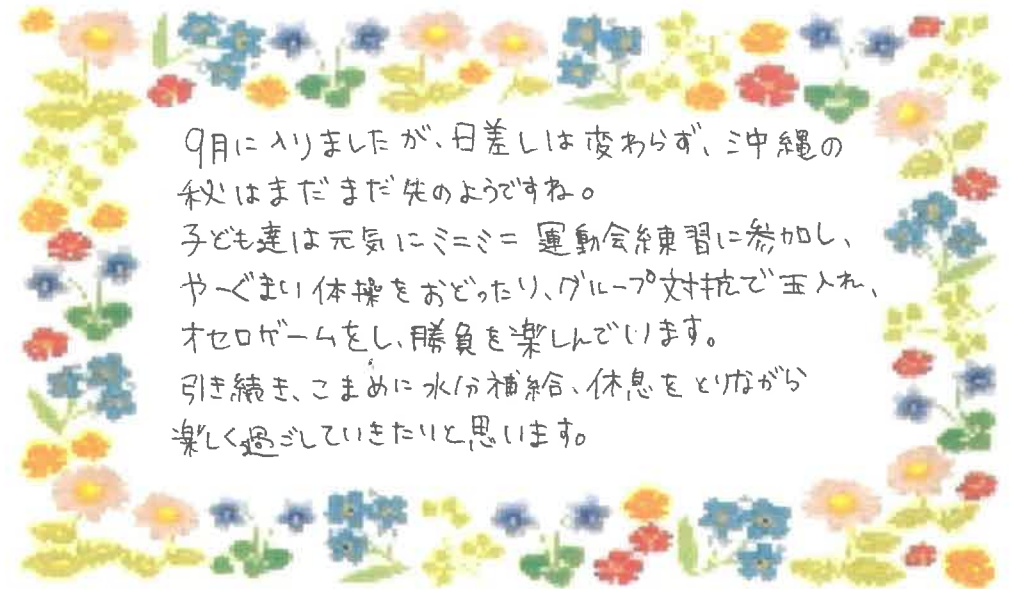 9月に入りましたが、日差しは変わらず、沖縄の
秋はまだまだ先のようですね。
子ども達は元気にミニミニ運動会練習に参加し、
やーぐまい体操をおどったり、グループ対抗で玉入れ、
オセロゲームをし、勝負を楽しんでいます。
引き続き、こまめに水分補給、休息をとりながら
楽しく過ごしていきたいと思います。